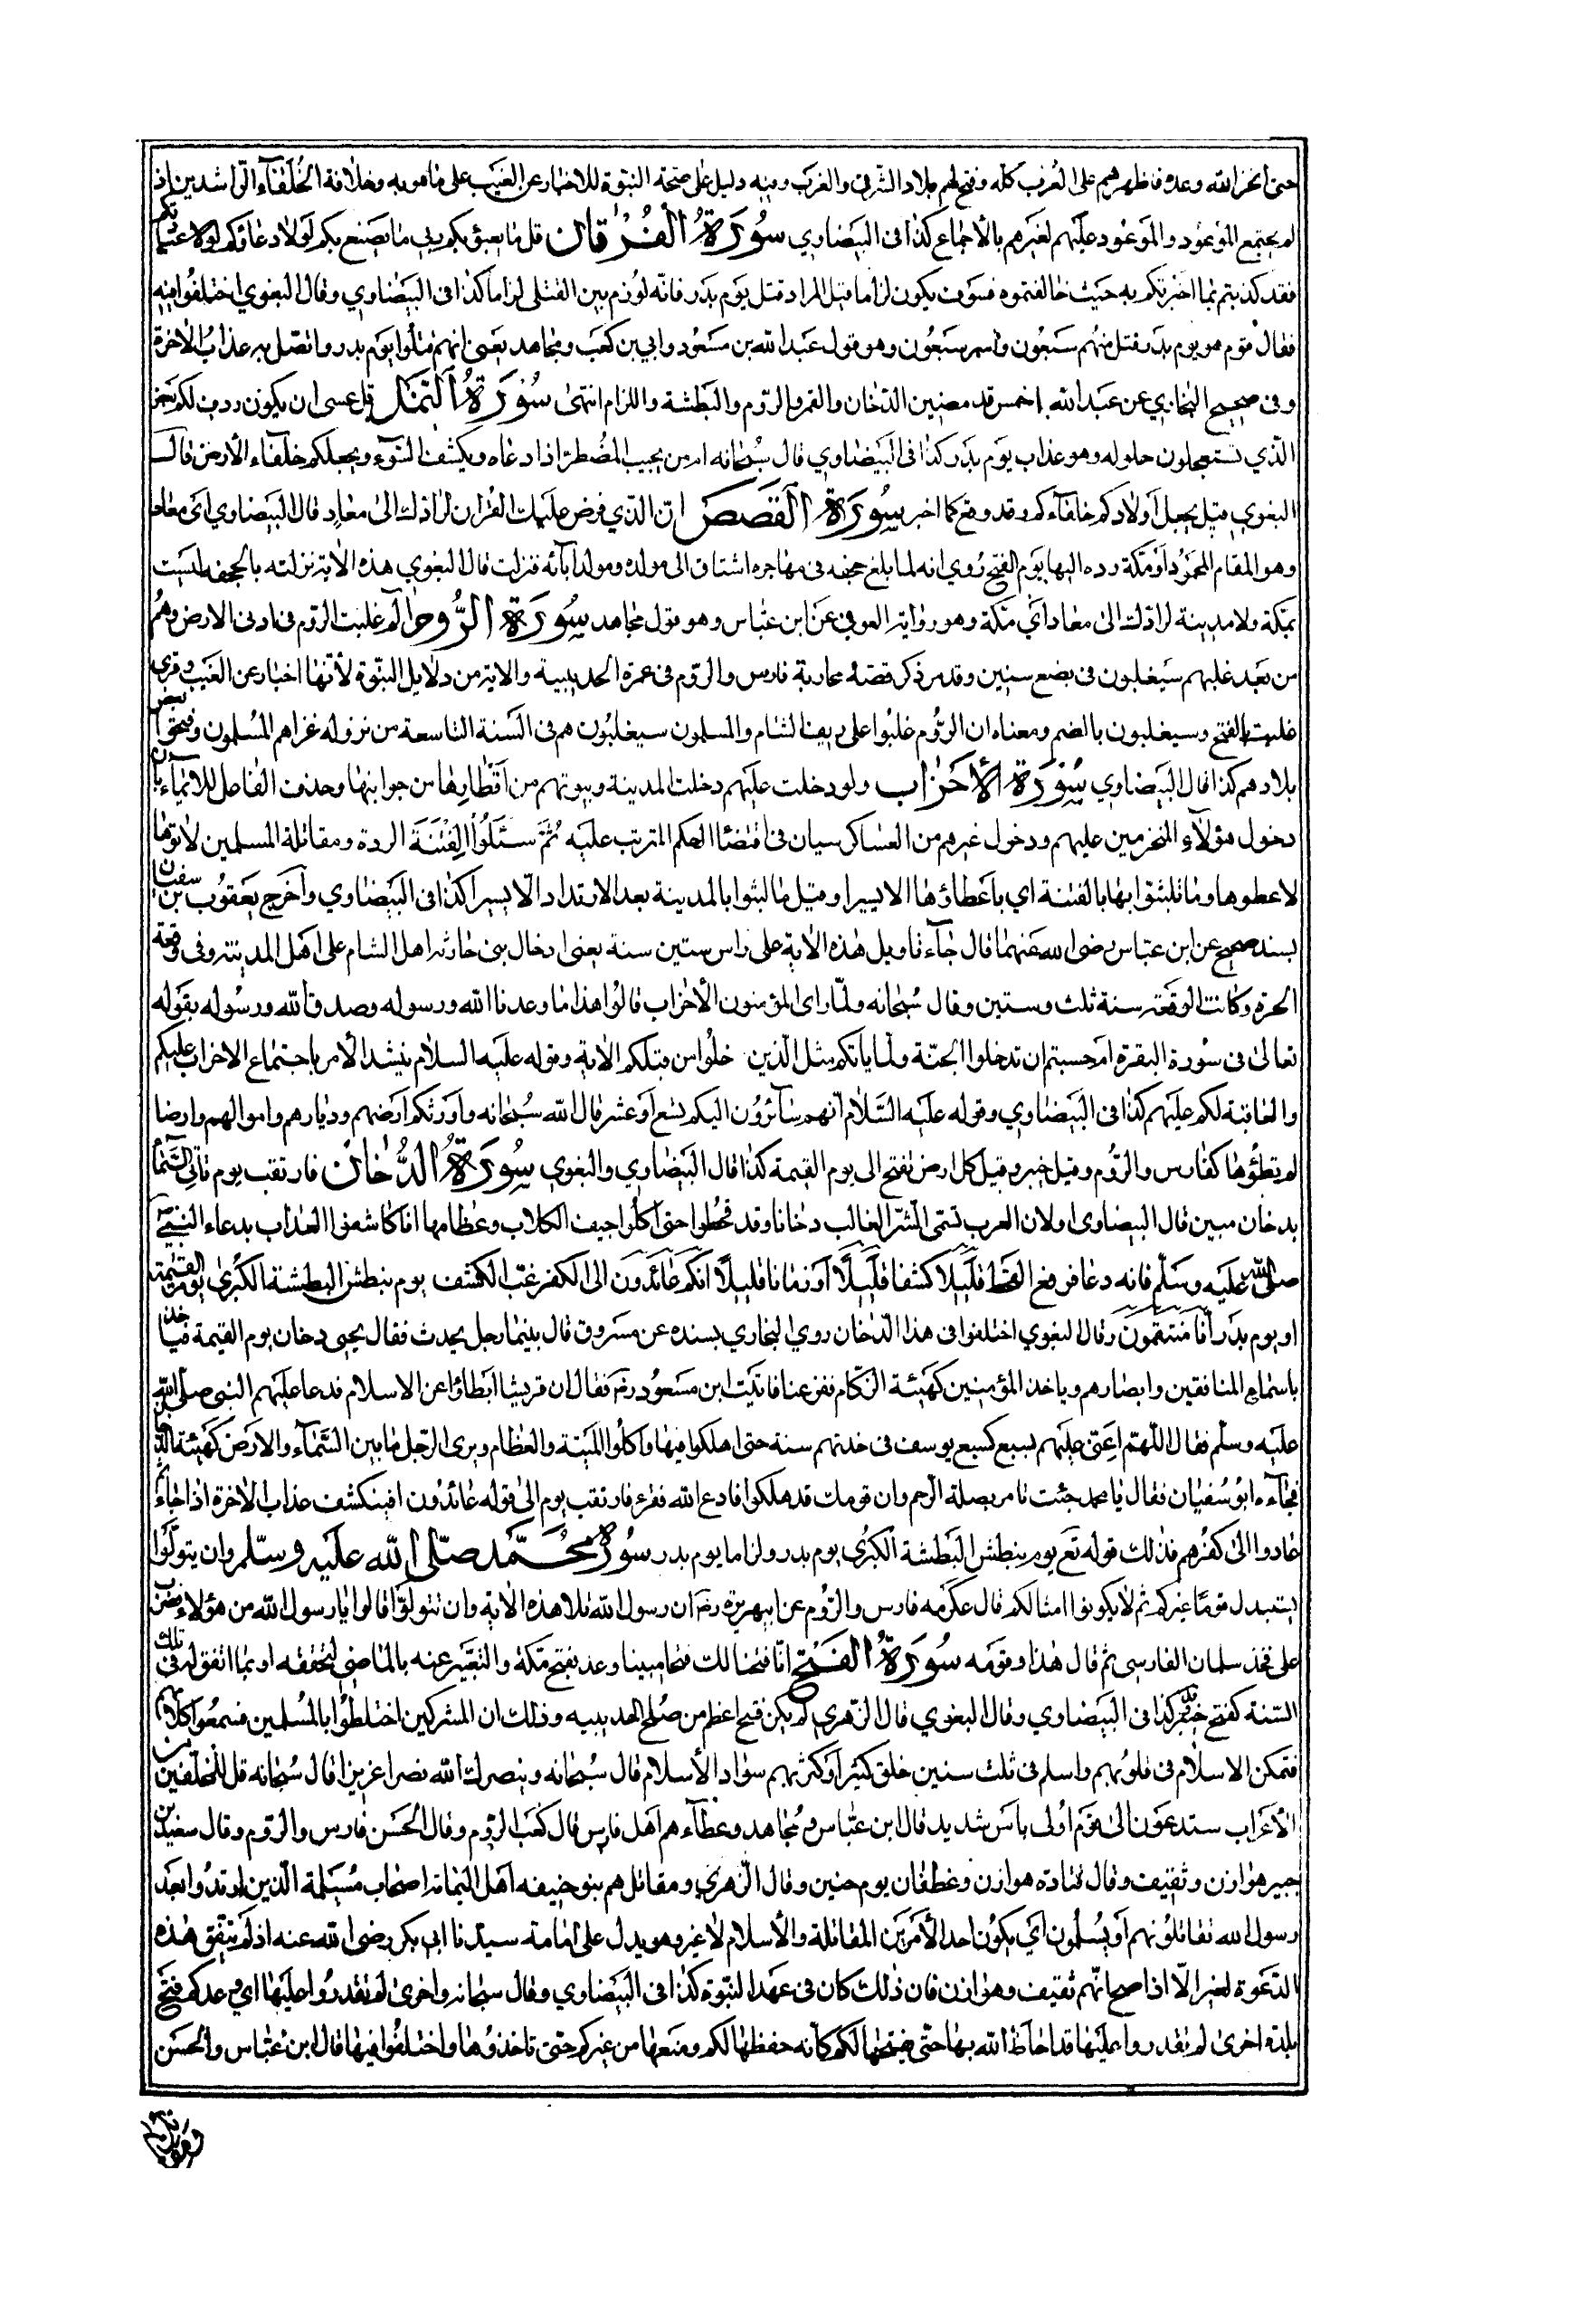 حتى انجز الله وعده فاظهرهم على العرب كله وفتح لهم بلاد الشرق والغرب وفيه دليل على صحة النبوة للاخبار عن الغيب على ما هو به وخلافة الخلفآء الراشدين اذ
لم يجتمع الموعود والموعود عليهم لغيرهم بالاجماع كذا فى البيضاوي سورة الفرقان قل ما يعبؤ بكم ربي ما يصنع بكم لولا دعاؤكم لولا عبادتكم
فقد كذبتم بما اخبرتكم به حيث خالفتموه فسوف يكون لزاما قيل المراد قتل يوم بدر فانه لوزم بين القتلى لزاما كذا فى البيضاوي وقال البغوي اختلفوا فيه
فقال قوم هو يوم بدر قتل منهم سبعون واسر سبعون وهو قول عبد الله بن مسعود وابي بن كعب ومجاهد يعنى انهم قتلوا يوم بدر واتصل به عذاب الاخرة
وفى صحيح البخاري عن عبد الله خمس قد مضين الدخان والقمر والروم والبطشة واللزام انتهى سورة النمل قل عسى ان يكون ردف لكم بعض
الذي تستعجلون حلوله وهو عذاب يوم بدر كذا فى البيضاوي قال سبحانه امن يجيب المضطر اذا دعاه ويكشف السوء ويجعلكم خلفآء الارض قال
البغوي قيل يجعل اولادكم خلفآءكم وقد وقع كما اخبر سورة القصص ان الذي فرض عليك القران لرادك الى معاد قال البيضاوي اى معاد
وهو المقام المحمود او مكة رده اليها يوم الفتح روي انه لما بلغ جحفه فى مهاجره اشتاق الى مولده ومولد آبائه فنزلت قال البغوي هذه الاية نزلت بالجحفه ليست
بمكة ولا مدينة لرادك الى معاد اي مكة وهو رواية العوفي عن ابن عباس وهو قول مجاهد سورة الروم الم غلبت الروم فى ادنى الارض وهم
من بعد غلبهم سيغلبون فى بضع سنين وقد مر ذكر قصة محاربة فارس والروم فى عمرة الحديبية والاية من دلايل النبوة لانها اخبار عن الغيب وقرى
غلبت بالفتح وسيغلبون بالضم ومعناه ان الروم غلبوا على ريف الشام والمسلمون سيغلبون هم فى السنة التاسعة من نزوله غزاهم المسلمون وفتحوا بعض
بلادهم كذا قال البيضاوي سورة الاحزاب ولو دخلت عليهم دخلت المدينة وبيوتهم من اقطارها من جوانبها وحذف الفاعل للايماء بان
دخول هؤلاء المتحزبين عليهم ودخول غيرهم من العساكر سيان فى اقتضاء الحكم المترتب عليه ثم سئلوا الفتنة الردة ومقاتلة المسلمين لاتوها
لاعطوها وما تلبثوا بها بالفتنة اي باعطاؤها الا يسيرا وقيل ما لبثوا بالمدينة بعد الارتداد الا يسيرا كذا فى البيضاوي واخرج يعقوب بن سفين
بسند صحيح عن ابن عباس رضى الله عنهما قال جآء تاويل هذه الاية على راس ستين سنة يعنى ادخال بنى حارثه اهل الشام على اهل المدينة وفى وقعة
الحرة وكانت الوقعة سنة ثلث وستين وقال سبحانه ولما راى المؤمنون الاحزاب قالوا هذا ما وعدنا الله ورسوله وصدق الله ورسوله بقوله
تعالى فى سورة البقرة ام حسبتم ان تدخلوا الجنة ولما ياتكم مثل الذين خلوا من قبلكم الاية وقوله عليه السلام سيشتد الامر باجتماع الاحزاب عليكم
والعاقبة لكم عليهم كذا فى البيضاوي وقوله عليه السلام انهم سآئرون اليكم بتسع او عشر قال الله سبحانه واورثكم ارضهم وديارهم واموالهم وارضا
لم يطؤها كفارس والروم وقيل خيبر وقيل كل ارض يفتح الى يوم القيمة كذا قال البيضاوي والبغوي سورة الدخان فارتقب يوم تاتى السمآء
بدخان مبين قال البيضاوى اولان العرب تسمى الشر الغالب دخانا وقد قحطوا حتى اكلوا جيف الكلاب وعظامها انا كاشفوا العذاب بدعاء النبى
صلى الله عليه وسلم فانه دعا فرفع القحط قليلا كشفا قليلا او زمانا قليلا انكم عائدون الى الكفر غب الكشف يوم نبطش البطشة الكبرى يوم القيمة
او يوم بدر انا منتقمون وقال البغوي اختلفوا فى هذا الدخان روي البخاري بسنده عن مسروق قال بينما رجل يحدث فقال يجيى دخان يوم القيمة فياخذ
باسماع المنافقين وابصارهم وياخذ المؤمنين كهيئة الزكام ففزعنا فاتيت ابن مسعود رضه فقال ان قريشا ابطاؤا عن الاسلام فدعا عليهم النبى صلى الله
عليه وسلم فقال اللهم اعنى عليهم بسبع كسبع يوسف فى خذتهم سنة حتى اهلكوا فيها واكلوا الميتة والعظام ويرى الرجل ما بين السمآء والارض كهيئة الدخان
فجآءه ابو سفيان فقال يا محمد جئت تامر بصلة الرحم وان قومك قد هلكوا فادع الله فقرء فارتقب يوم الى قوله عائدون افينكشف عذاب الاخرة اذا جآء ثم
عادوا الى كفرهم فذلك قوله تع يوم نبطش البطشة الكبرى يوم بدر ولزاما يوم بدر سورة محمد صلى الله عليه وسلم وان يتولوا
يستبدل قوما غيركم ثم لا يكونوا امثالكم قال عكرمه فارس والروم عن ابيهريره رضه ان رسول الله تلا هذه الاية وان تتولوا قالوا يا رسول الله من هؤلاء فضرب
على فخذ سلمان الفارسى ثم قال هذا وقومه سورة الفتح انا فتحنا لك فتحا مبينا وعد بفتح مكة والتعبير عنه بالماضى لتحققه او بما اتفق له فى تلك
السنة كفتح خيبر كذا فى البيضاوي وقال البغوي قال الزهري لم يكن فتح اعظم من صلح الحديبيه وذلك ان المشركين اختلطوا بالمسلمين فسمعوا كلامهم
فتمكن الاسلام فى قلوبهم واسلم فى ثلث سنين خلق كثير وكثر بهم سواد الاسلام قال سبحانه وينصرك الله نصرا عزيزا قال سبحانه قل للمخلفين من
الاعراب ستدعون الى قوم اولى باس شديد قال ابن عباس ومجاهد وعطآء هم اهل فارس قال كعب الروم وقال الحسن فارس والروم وقال سعيد بن
جبير هوازن وثقيف وقال قتادة هوازن وغطفان يوم حنين وقال الزهري ومقاتل هم بنو حنيفه اهل اليمامة اصحاب مسيلمة الذين ارتدوا بعد
رسول الله تقاتلونهم او يسلمون اي يكون احد الامرين المقاتلة والاسلام لا غير وهو يدل على امامة سيدنا ابى بكر رضى الله عنه اذ لم يتفق هذه
الدعوة لغيره الا اذا صح انهم ثقيف وهوازن فان ذلك كان فى عهد النبوة كذا فى البيضاوي وقال سبحانه واخرى لم تقدروا عليها اي وعدكم فتح
بلدة اخرى لم تقدروا عليها قد احاط الله بها حتى يفتحها لكم كانه حفظها لكم ومنعها من غيركم حتى تاخذوها واختلفوا فيها قال ابن عباس والحسن